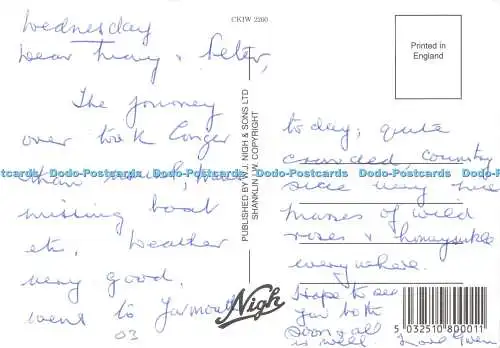 CKIW 2260
Wednesday
Dear Mary & Peter,
The journey
over took longer
than usual,
missing boat
etc. Weather
very good.
went to Yarmouth
03
PUBLISHED BY W.J. NIGH & SONS LTD
SHANKLIN I.W. COPYRIGHT
Nigh
Printed in
England
today; quite
crowded, country
side very nice
masses of wild
roses & honeysuckle
everywhere.
Hope to see
you both
soon & all
is well. Love Gwen
5 032510 800011
Dodo-Postcards Dodo-Postcards Dodo-Postcards Dodo-Postcards